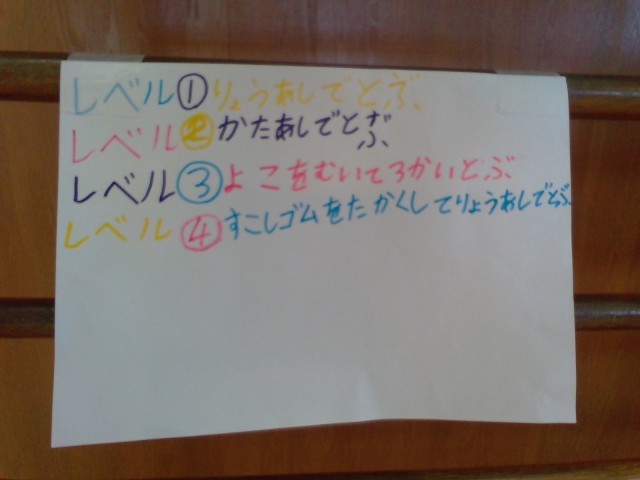 レベル①りょうあしでとぶ
レベル②かたあしでとぶ
レベル③よこをむいて3かいとぶ
レベル④すこしゴムをたかくしてりょうあしでとぶ